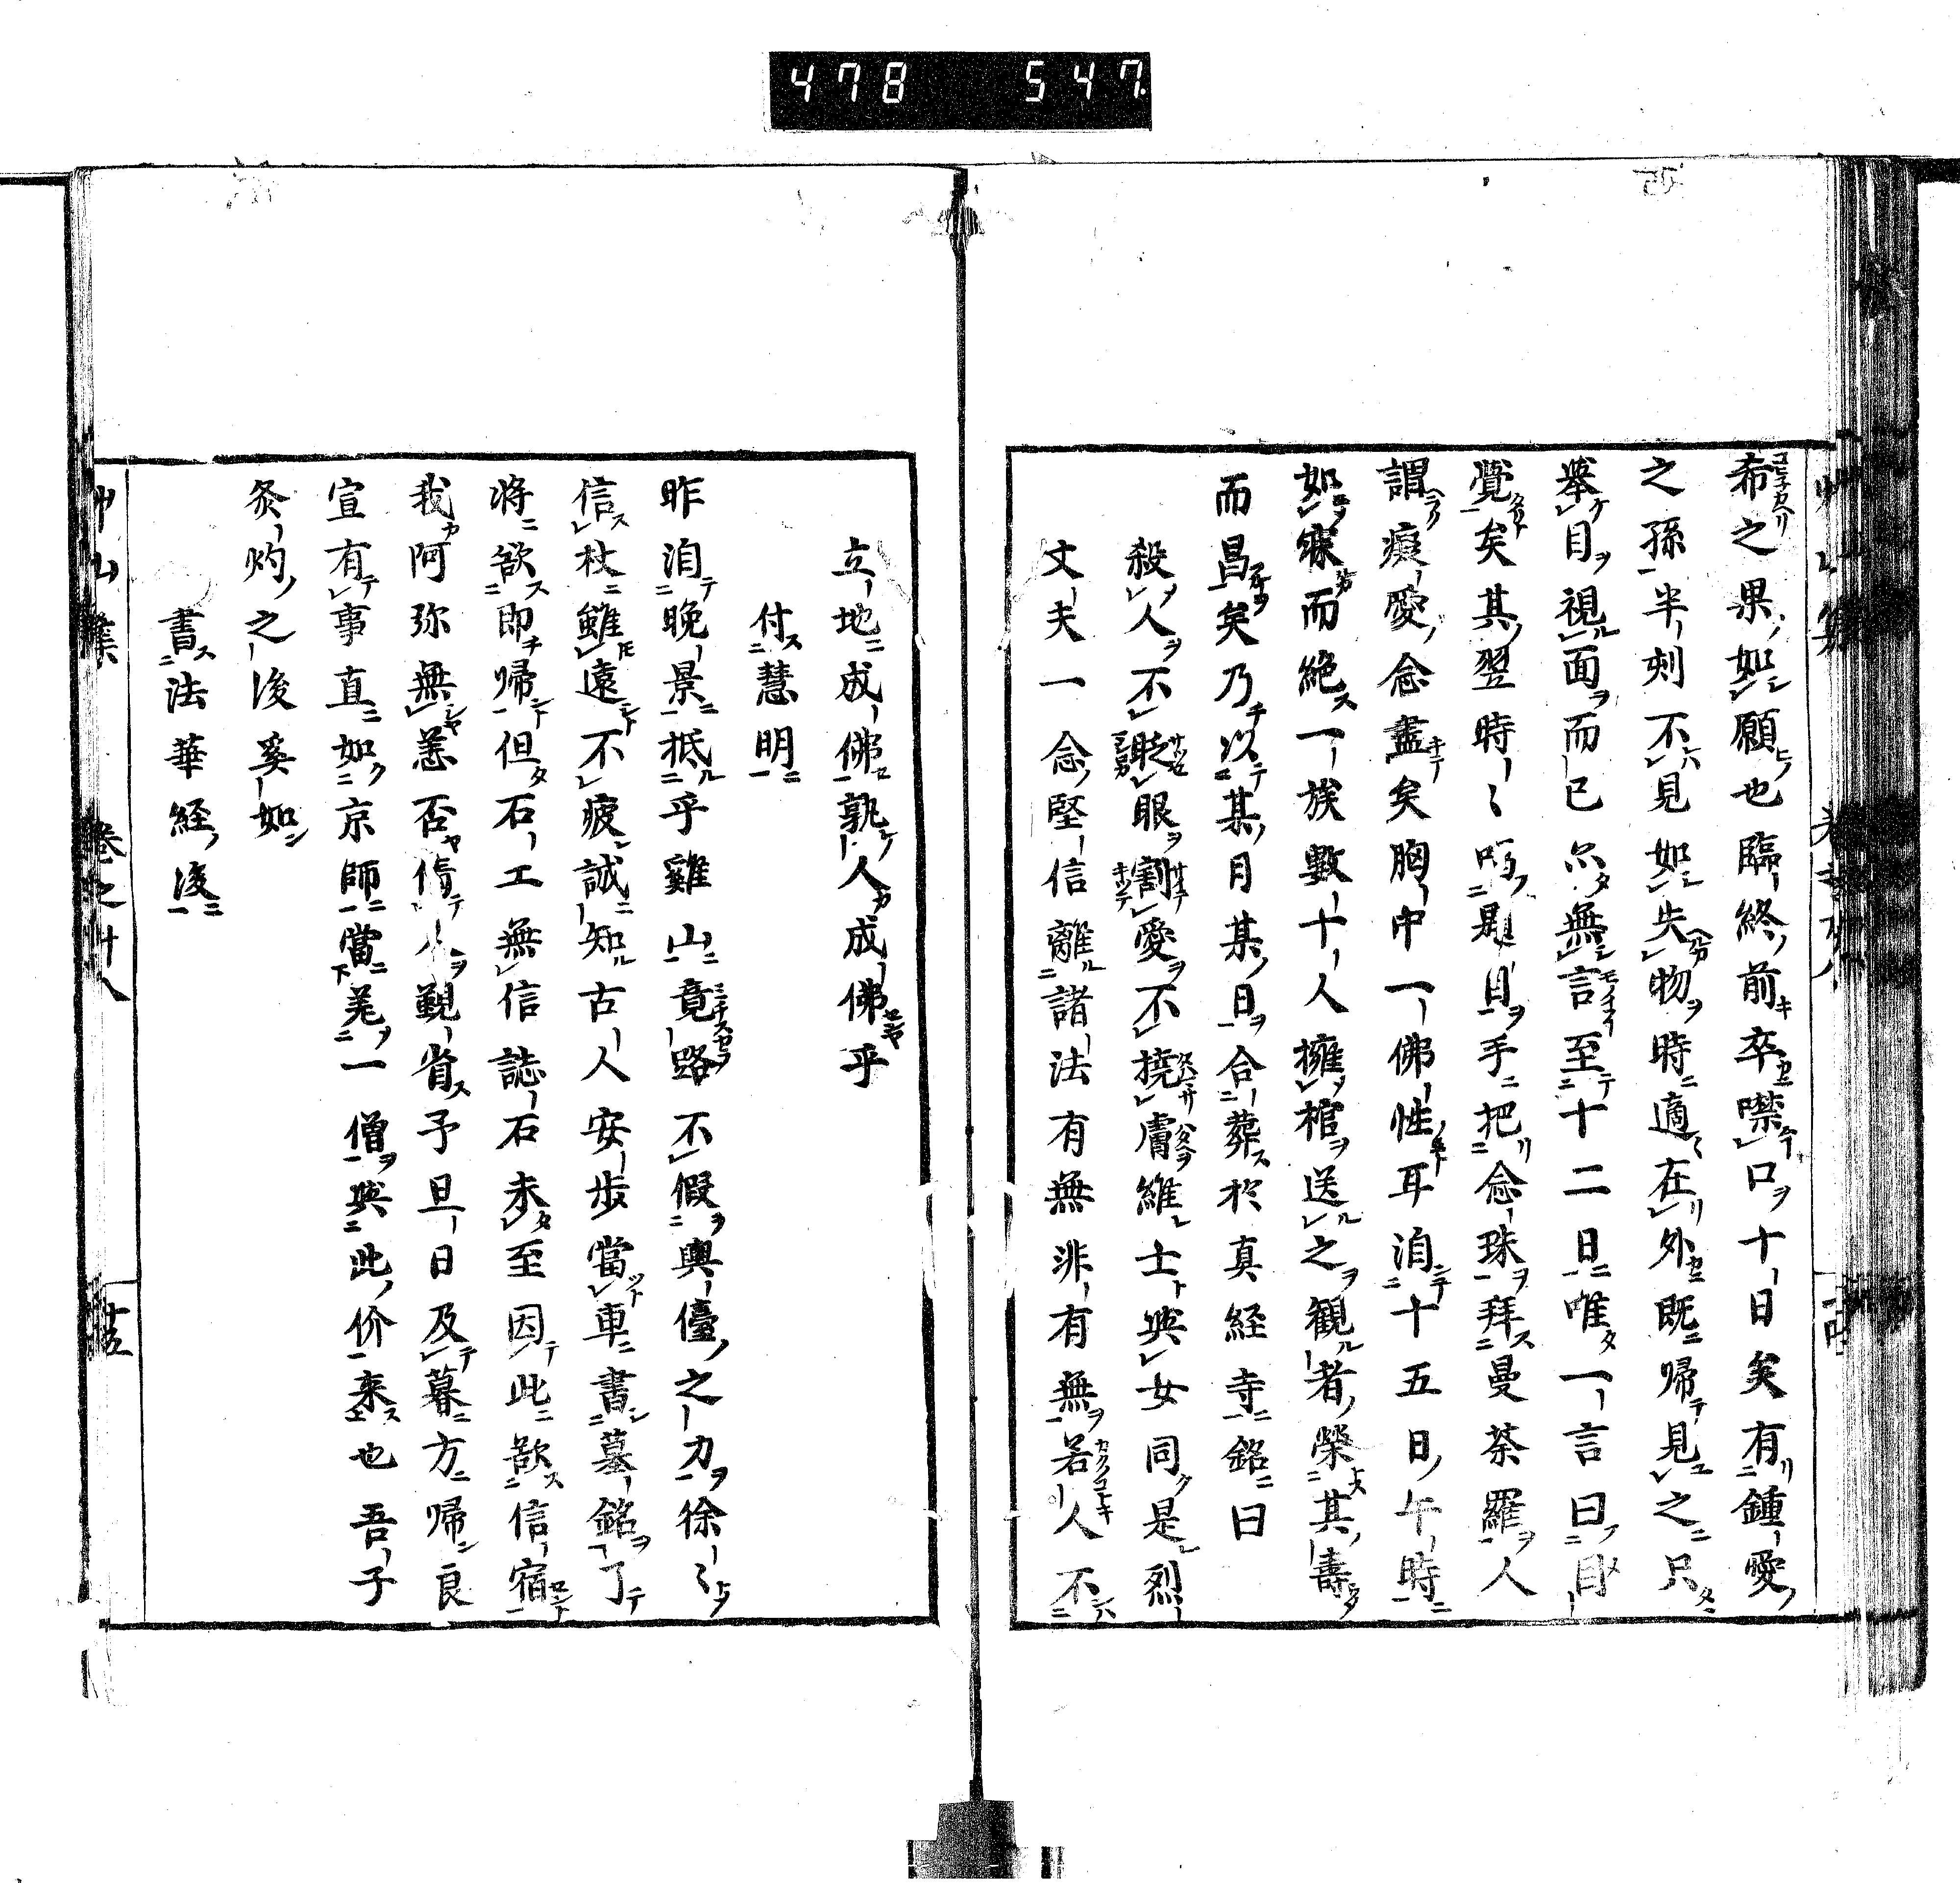 478 547
希之果如願也臨終前卒噤口十日矣有鍾愛
之孫半刻不見如失物時適在外既歸見之只
擧目視面而已尓無言至十二日唯一言曰目
覺矣其翌時〻呵是目手把念珠拜曼荼羅人
謂癡愛念盡矣胸中一佛性耳洎十五日午時
如寐而絶一族數十人擁棺送之觀者榮其壽
而昌矣乃以某月某日合葬於真経寺銘曰
殺人不眨眼割愛不撓膚維士與女同是烈
丈夫一念堅信離諸法有無非有無若人不
立地成佛孰人成佛乎
付慧明
昨洎晚景抵乎雞山竟路不假輿儓之力徐〻
信杖雖遠不疲誠知古人安歩當車書墓銘了
將欲即歸但石工無信誌石未至因此歎信宿
我阿弥無恙否倩人覲省予旦日及暮方歸良
宣有事直如京師當羌一僧與此价来也吾子
灸灼之後奚如
書法華経後
艸山集 卷之廿八 十五